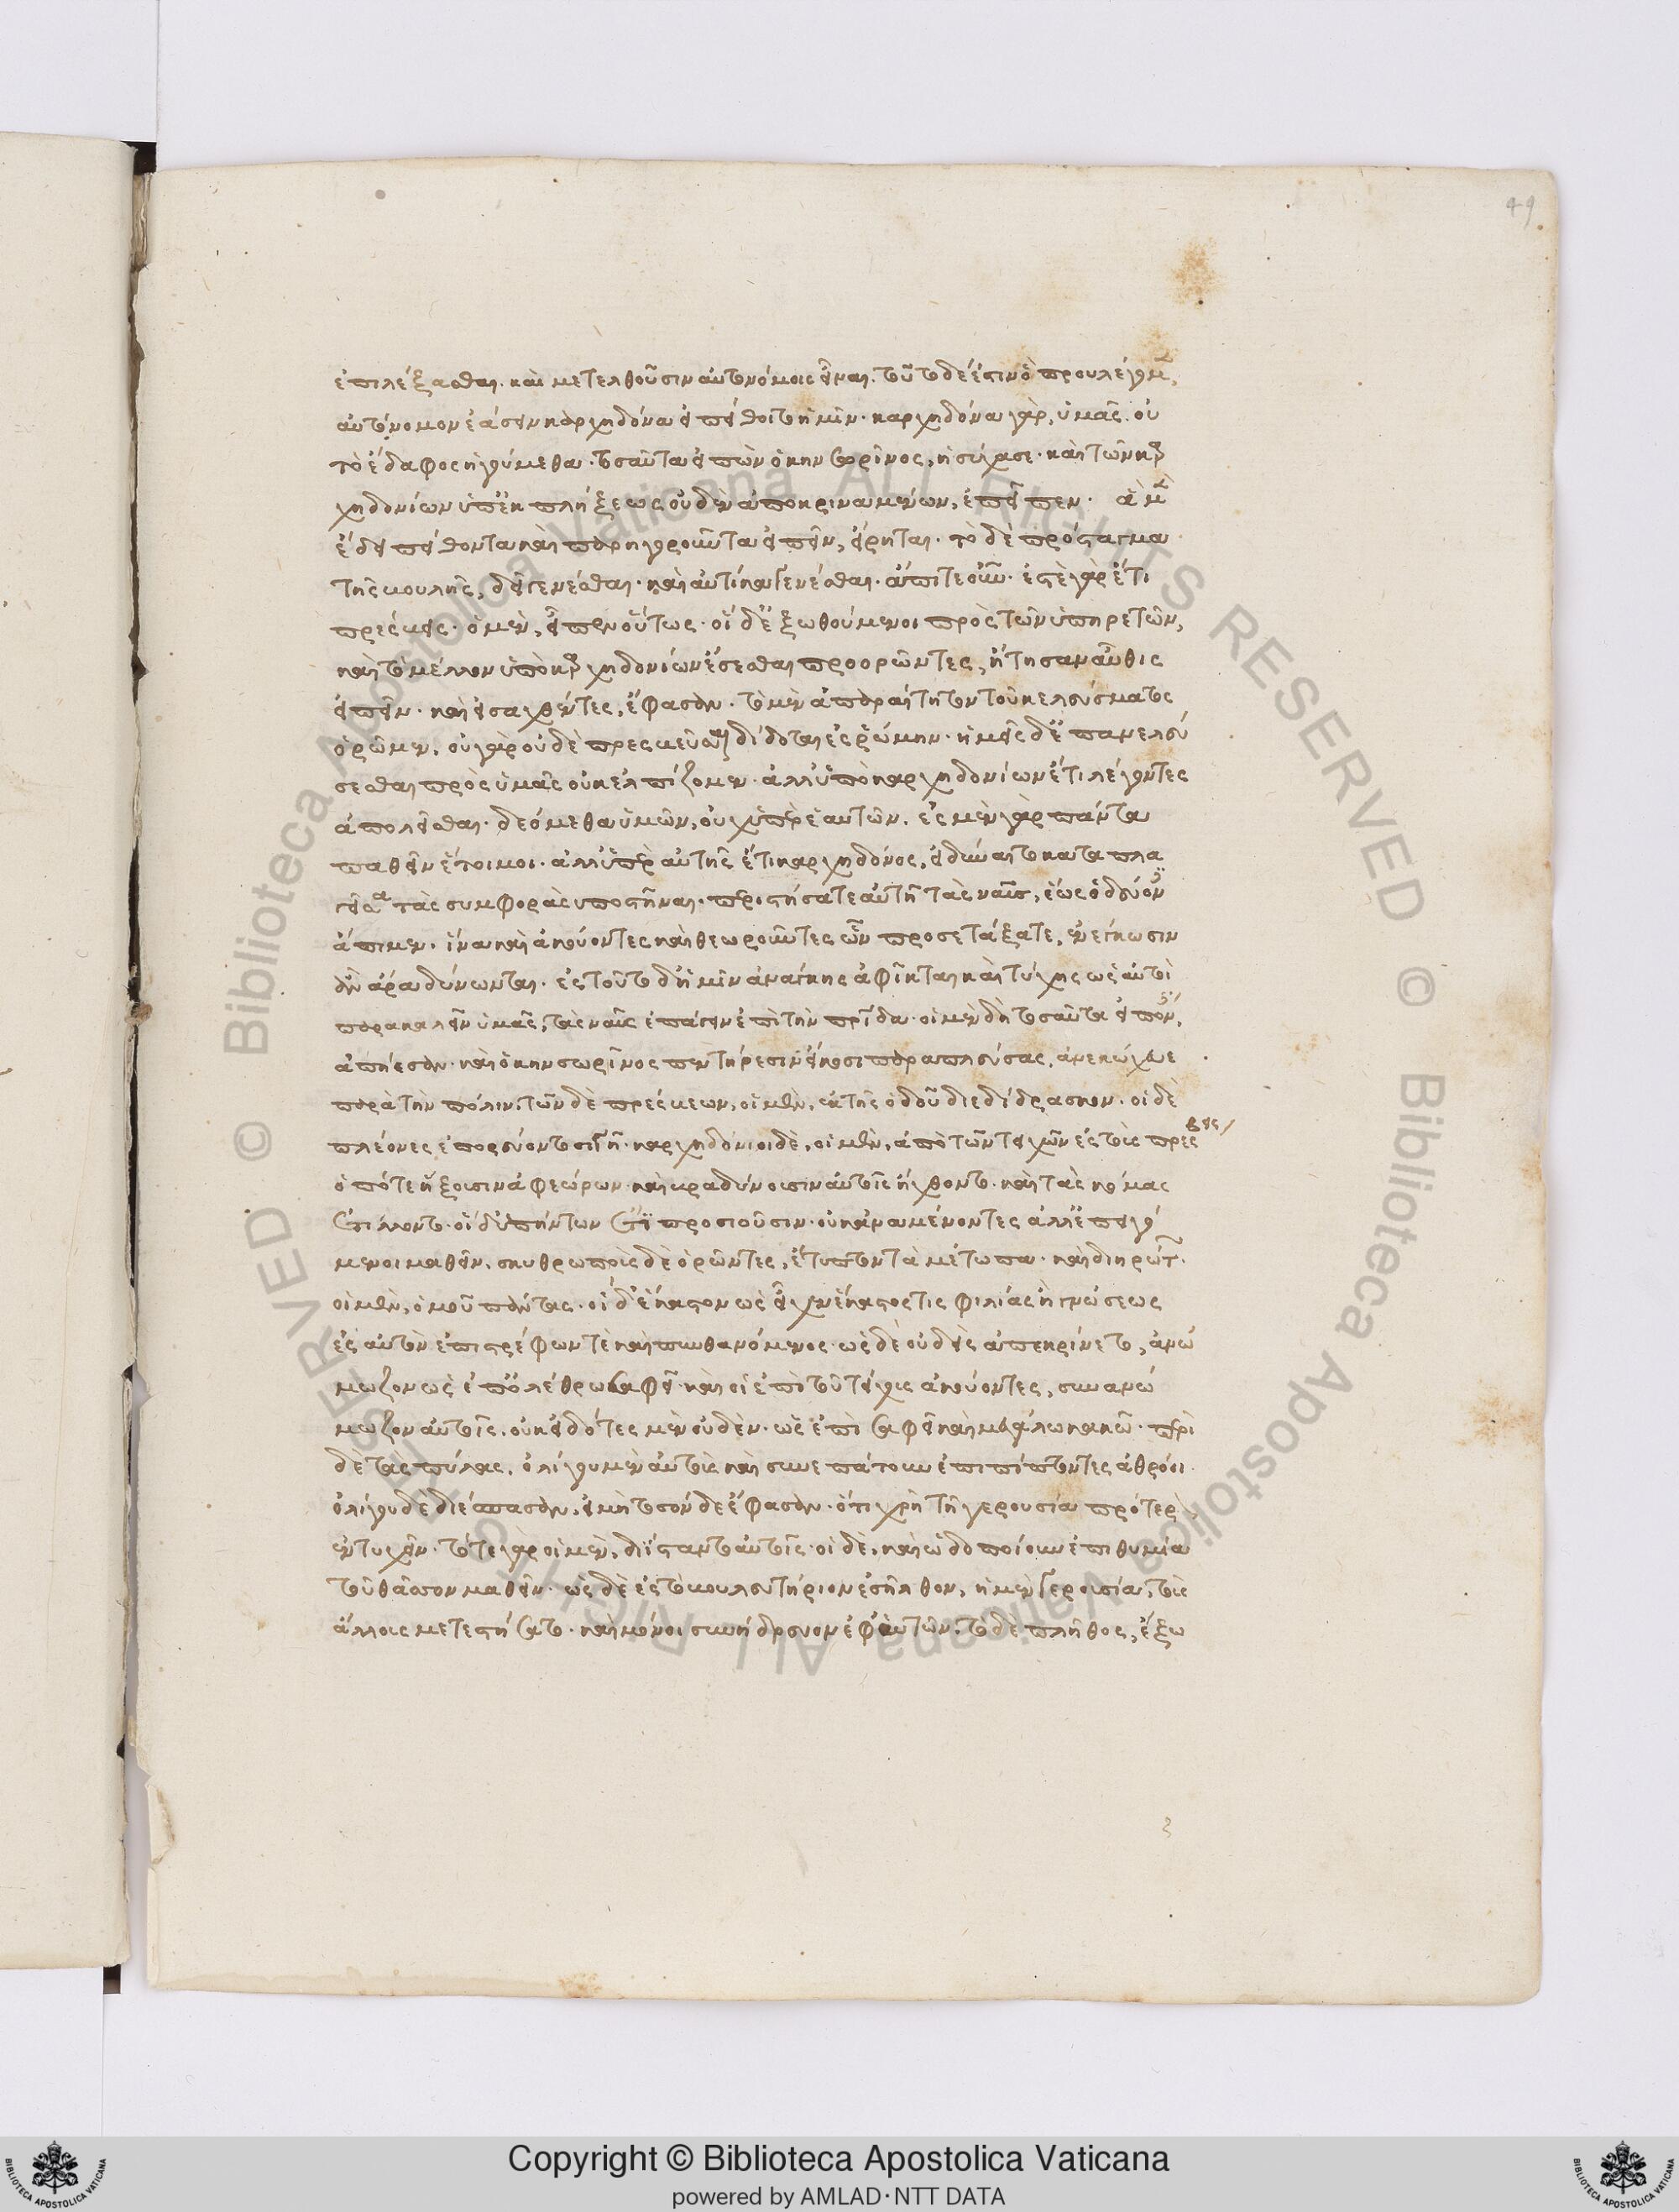 49
ἐπιλέξασθαι. καὶ μετελθοῦσιν αὐτονόμοις εἶναι. τοῦτο δέ ἐστιν ὃ προυλέγομ,
αὐτόνομον ἐάσειν καρχηδόνα εἰ πείθοιτο ἡμῖν. καρχηδόνα γὰρ, ὑμᾶς. οὐ
τὸ ἔδαφος ἡγούμεθα. τοσαῦτα εἰπὼν ὁ κηνσωρῖνος, ἡσύχασε. καὶ τῶν καρ
χηδονίων ὑπ' ἐκπλήξεως οὐδὲν ἀποκριναμένων, ἐπεῖπεν. ἃ μὲν
ἔδει πείθοντα καὶ παρηγοροῦντα εἰπεῖν, εἴρηται. τὸ δὲ πρόσταγμα
τῆς βουλῆς, δεῖ γενέσθαι. καὶ αὐτίκα γενέσθαι. ἄπιτε οὖν. ἐστὲ γὰρ ἔτι
πρέσβεις. ὁ μὲν, εἶπεν οὕτως. οἱ δ' ἐξωθούμενοι πρὸς τῶν ὑπηρετῶν,
καὶ τὸ μέλλον ὑπὸ καρχηδονίων ἔσεσθαι προορῶντες, ᾔτησαν αὖθις
εἰπεῖν. καὶ ἐσαχθέντες, ἔφασαν. τὸ μὲν ἀπαραίτητον τοῦ κελεύσματος
ὁρῶμεν. οὐ γὰρ οὐδὲ πρεσβεῦσαι δίδοται ἐς ῥώμην. ἡμεῖς δ' ἐπανελεύ
σεσθαι πρὸς ὑμᾶς οὐκ ἐλπίζομεν. ἀλλ' ὑπὸ καρχηδονίων ἔτι λέγοντες
ἀπολεῖσθαι. δεόμεθα ὑμῶν, οὐχ ὑπὲρ ἑαυτῶν. ἐσμὲν γὰρ πάντα
παθεῖν ἕτοιμοι. ἀλλ' ὑπὲρ αὐτῆς ἔτι καρχηδόνος, εἰ δύναιτο καταπλα
γεῖσα τὰς συμφορὰς ὑποστῆναι. περιστήσατε αὐτῇ τὰς ναῦς, ἕως ὁδεύον
ἄπιμεν. ἵνα καὶ ἀκούοντες καὶ θεωροῦντες ὧν προσετάξατε, ἐνέγκωσιν
ἂν ἄρα δύνωνται. ἐς τοῦτο δ' ἡμῖν ἀνάγκης ἀφῖκται καὶ τύχης ὡς αὐτοὶ
παρακαλεῖν ὑμᾶς, τὰς ναῦς ἐπάγειν ἐπὶ τὴν πρίδα. οἱ μὲν δὴ τοσαῦτα εἰπόν,
ἀπῄεσαν. καὶ ὁ κηνσωρῖνος πεντήρεσιν εἴκοσι παραπλεύσας, ἀνεκώχευε
παρὰ τὴν πόλιν. τῶν δὲ πρέσβεων, οἱ μὲν, ἐκ τῆς ὁδοῦ διεδίδρασκον. οἱ δὲ
πλέονες ἐπορεύοντο σιγῇ. καρχηδόνιοι δὲ, οἱ μὲν, ἀπὸ τῶν τειχῶν ἐς τοὺς πρέσβεις
ὁπότε ἥξουσιν ἀφεώρων. καὶ βραδύνουσιν αὐτοῖς ἤχθοντο. καὶ τὰς κόμας
ἐτίλλοντο. οἱ δ' ὑπήντων ἔτι προσιοῦσιν. οὐκ ἀναμένοντες ἀλλ' ἐπειγό
μενοι μαθεῖν. σκυθρωποὺς δὲ ὁρῶντες, ἐτύπτοντο τὰ μέτωπα. καὶ διηρώτ.
οἱ μὲν, ὁμοῦ πάντας. οἱ δ' ἕκαστον ὡς εἶχεν ἕκαστός τις φιλίας ἢ γνώσεως
ἐς αὐτὸν ἐπιστρέφων τὲ καὶ πυνθανόμενος. ὡς δὲ οὐδεὶς ἀπεκρίνετο, ἀνῴ
μωζον ὡς ἐπ' ὀλέθρῳ σαφεῖ. καὶ οἱ ἐπὶ τοῦ τείχους ἀκούοντες, συνανῴ
μωζον αὐτοῖς. οὐκ εἰδότες μὲν οὐδὲν. ὡς ἐπὶ σαφεῖ καὶ μεγάλῳ κακῷ. περὶ
δὲ τὰς πύλας, ὀλίγου μὲν αὐτοὺς καὶ συνεπάτουν ἐπιπίπτοντες ἀθρόοι.
ὀλίγου δὲ διέσπασαν, εἰ μὴ τοσόνδε ἔφασαν. ὅτι χρὴ τῇ γερουσίᾳ πρότερ
ἐντυχεῖν. τότε γὰρ οἱ μὲν, διίσταντο αὐτοῖς. οἱ δὲ, καὶ ὡδοποίουν ἐπιθυμίᾳ
τοῦ θᾶσσον μαθεῖν. ὡς δὲ ἐς τὸ βουλευτήριον ἐσῆλθον, ἡ μὲν γερουσία, τοὺς
ἄλλους μετεστήσατο. καὶ μόνοι συνήδρευον ἐφ' ἑαυτῶν. τὸ δὲ πλῆθος, ἔξω
Copyright © Biblioteca Apostolica Vaticana
powered by AMLAD·NTT DATA